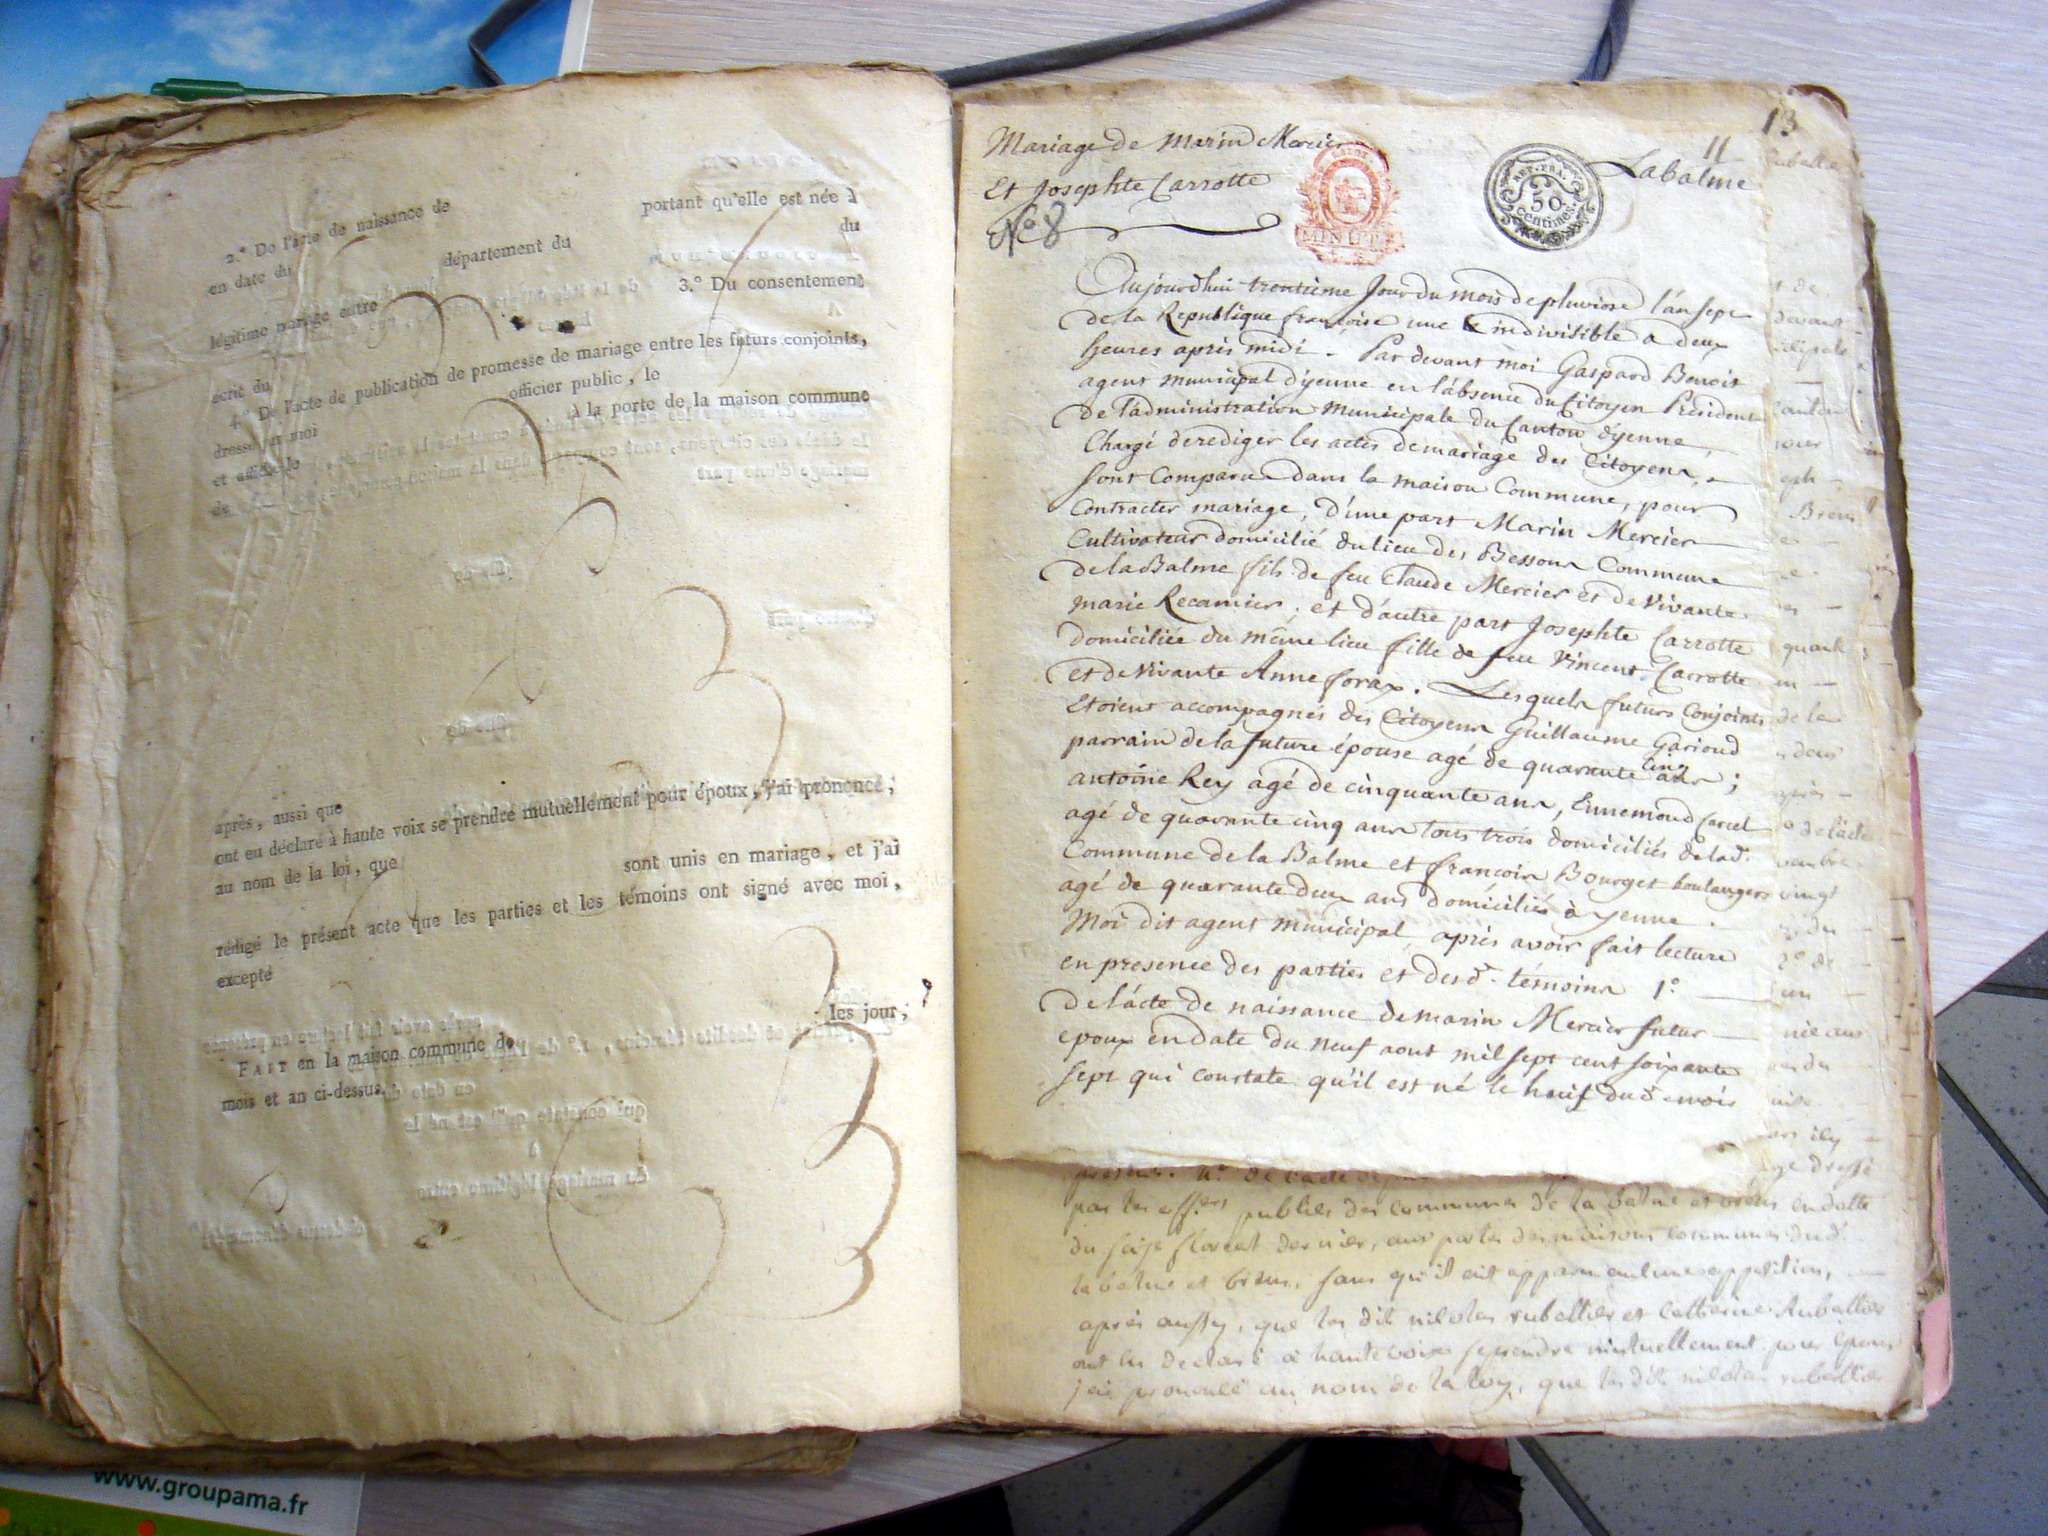 2.º De l'acte de naissance de portant qu'elle est née à
en date du département du du
légitime mariage entre 3.º Du consentement
écrit du
4.º De l'acte de publication de promesse de mariage entre les futurs conjoints,
dressé par moi officier public, le
et affiché le à la porte de la maison commune
de
après, aussi que
ont eu déclaré à haute voix se prendre mutuellement pour époux, j'ai prononcé,
au nom de la loi, que
sont unis en mariage, et j'ai
rédigé le présent acte que les parties et les témoins ont signé avec moi,
excepté
FAIT en la maison commune de les jour,
mois et an ci-dessus.
13
Mariage de Marin Mercier
Et Josephte Carrotte
Nº 8
MINUTE
REP. FRA.
50
centimes
11
Labalme
Aujourdhui trentième Jour du mois de pluviose l'an sept
de la Republique françoise une & indivisible a deux
heures après midi. Par devant moi Gaspard Benoit
agent municipal d'yenne en l'absence du Citoyen President
de l'administration municipale du Canton d'yenne,
Chargé de rediger les actes de mariage des Citoyens,
sont Comparu dans la maison Commune, pour
Contracter mariage, d'une part Marin Mercier
Cultivateur domicilié du lieu des Bessons Commune
de la Balme fils de feu Claude Mercier et de vivante
marie Recamier; et d'autre part Josephte Carrotte
domiciliée du même lieu fille de feu Vincent Carrotte
et de vivante Anne forax. Lesquels futurs Conjoints
Etoient accompagnés des Citoyens Guillaume Garioud
parrain de la future épouse agé de quarante cinq ans;
antoine Rey agé de cinquante ans, Ennemond Carcel
agé de quarante cinq ans tous trois domiciliés de lad.
Commune de la Balme et françois Bourget boulanger
agé de quarante deux ans domicilié à yenne.
Moi dit agent municipal, après avoir fait lecture
en presence des parties et desd. témoins 1.º
de l'acte de naissance de marin Mercier futur
epoux en date du neuf aout mil sept cent soixante
sept qui constate qu'il est né le huit dud. mois
par les publics des Communes de la balme et en datte
du floreal dernier, aux portes des maisons communes dud.
la balme et sans qu'il ait opposition,
après aussy, que les dits nicolas rubellier et Rubellier
ont eu declaré a haute voix se prendre mutuellement pour epoux
j'ai prononcé au nom de la loy, que les dits nicolas rubellier
www.groupama.fr